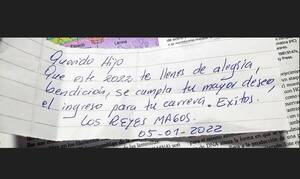 Querido Hijo
Que este 2022 te llenes de alegría,
bendición, se cumpla tu mayor deseo,
el ingreso para tu carrera. Exitos.
LOS REYES MAGOS.
05-01-2022